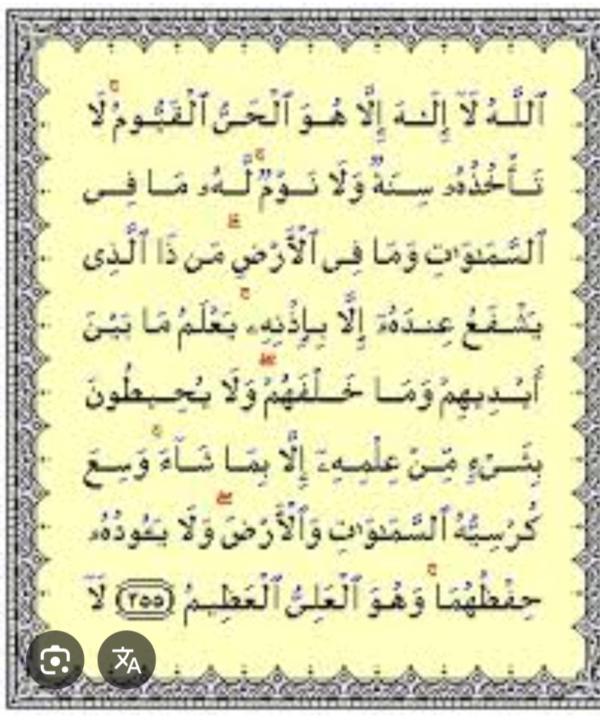 ٱللَّـهُ لَآ إِلَـٰهَ إِلَّا هُـوَ ٱلْحَىُّ ٱلْقَيُّـومُ ۚ لَا
تَـأْخُذُهُۥ سِـنَةٌ وَلَا نَـوْمٌ ۚ لَّـهُۥ مَـا فِـى
ٱلسَّمَـٰوَٰتِ وَمَا فِـى ٱلْأَرْضِ ۗ مَن ذَا ٱلَّذِى
يَشْـفَعُ عِندَهُۥٓ إِلَّا بِـإِذْنِهِۦ ۚ يَعْلَمُ مَا بَيْنَ
أَيْـدِيهِمْ وَمَـا خَـلْفَهُمْ ۖ وَلَا يُحِـيطُونَ
بِشَـىْءٍ مِّـنْ عِلْمِـهِۦٓ إِلَّا بِمَـا شَـآءَ ۚ وَسِـعَ
كُرْسِيُّهُ ٱلسَّمَـٰوَٰتِ وَٱلْأَرْضَ ۖ وَلَا يَـُٔودُهُۥ
حِفْظُهُمَا ۚ وَهُـوَ ٱلْعَلِىُّ ٱلْعَظِيـمُ ٢٥٥ لَآ